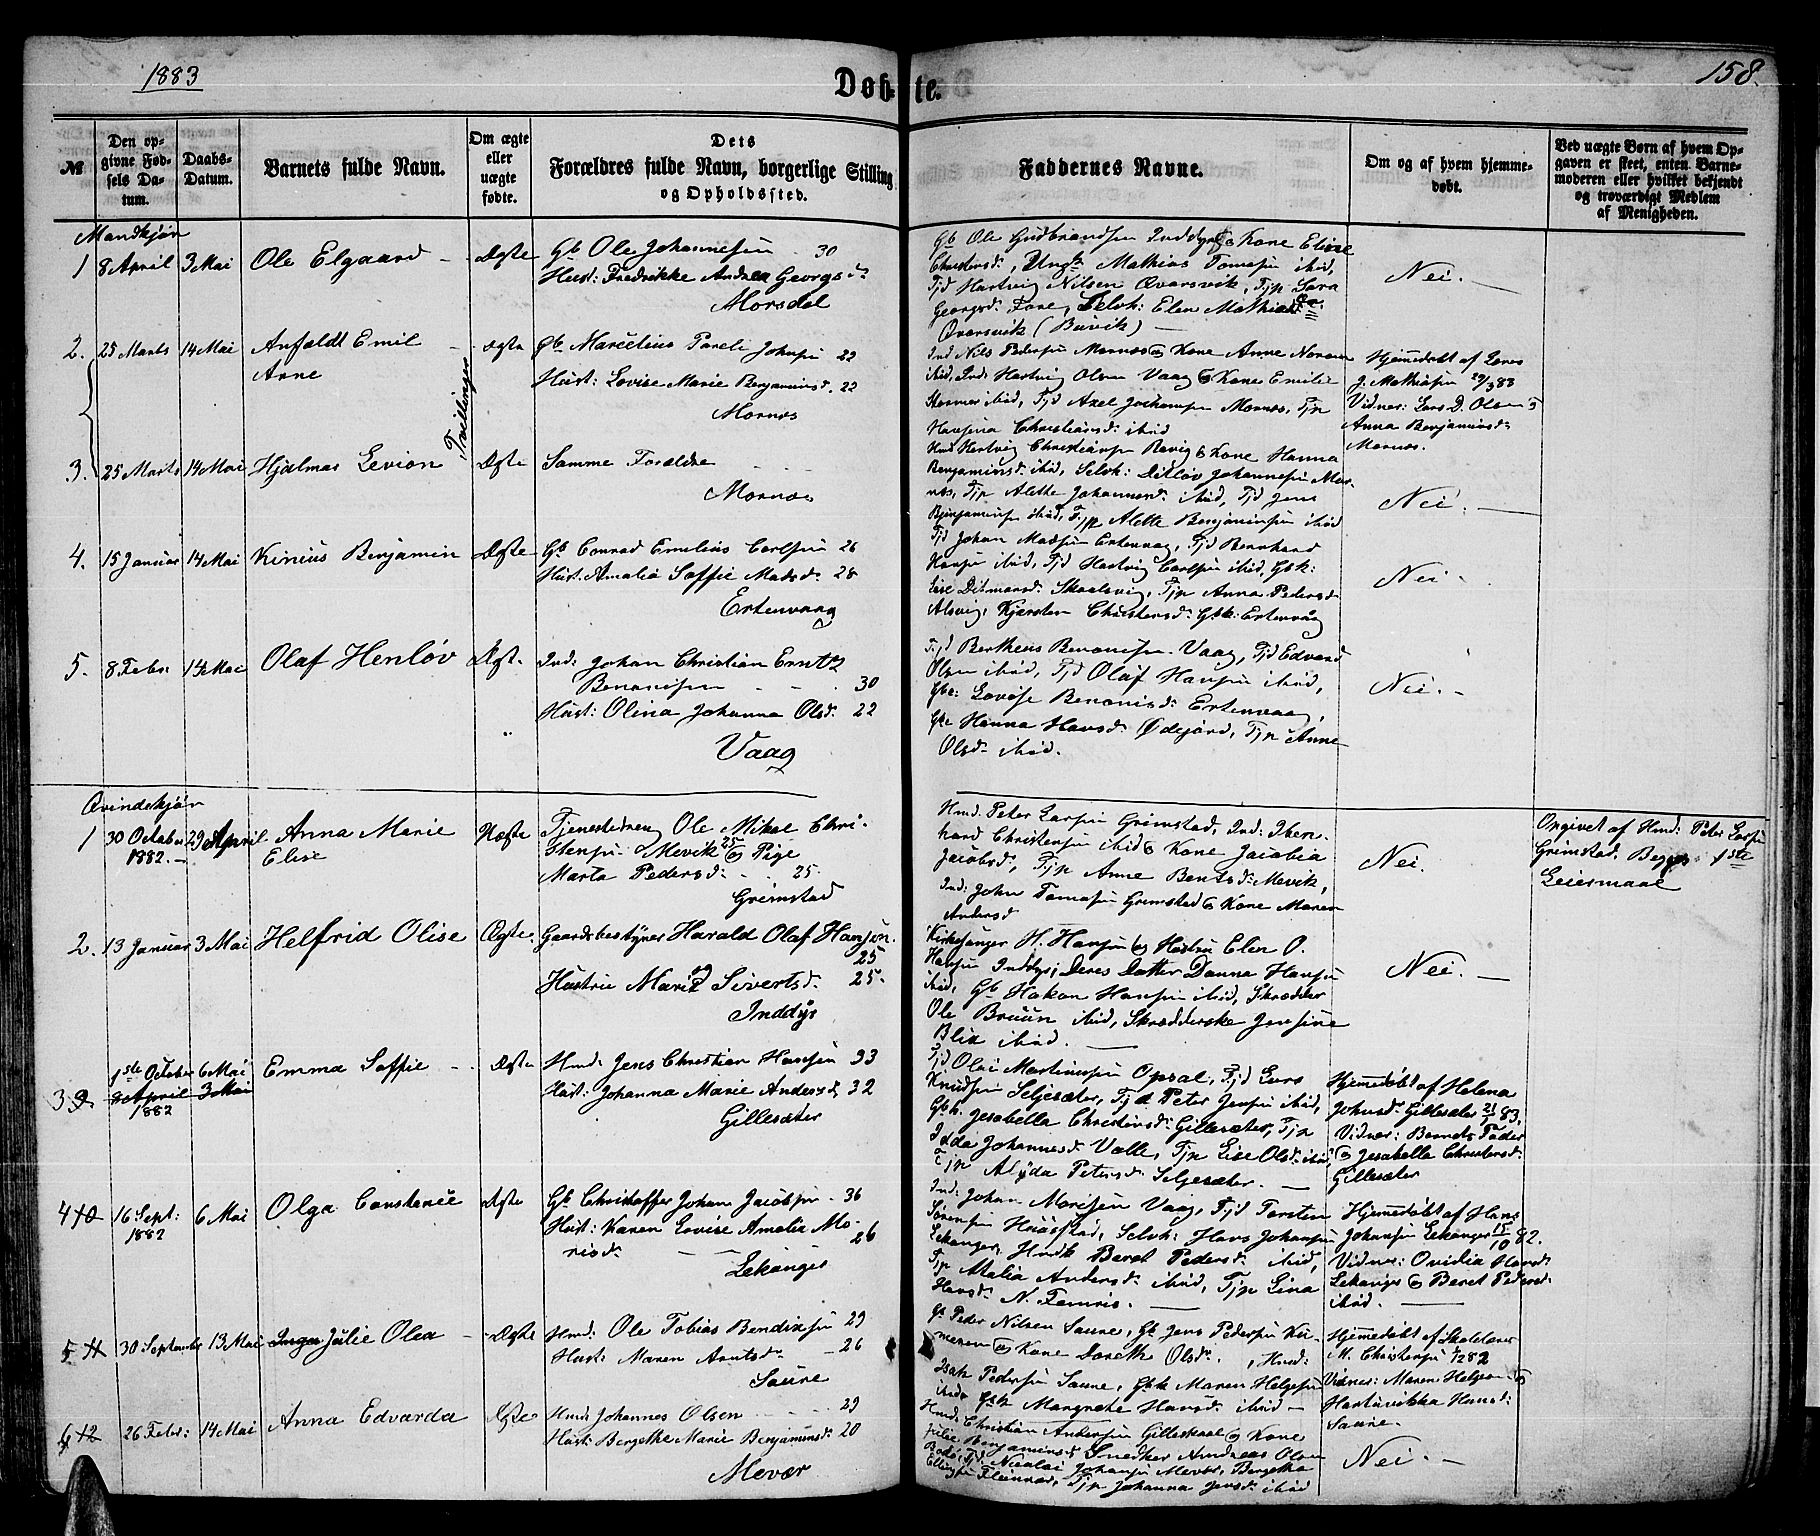 1883
Døbte.
158.
№
Den opgivne Fødsels Datum.
Daabs-Datum.
Barnets fulde Navn.
Om ægte eller uægte fødte.
Dets Forældres fulde Navn, borgerlige Stilling og Opholdssted.
Faddernes Navne.
Om og af hvem hjemmedøbt.
Ved uægte Børn af hvem Opgaven er skeet, enten Barnemoderen eller hvilket bekjendt og troværdigt Medlem af Menigheden.
Mandkjøn
1 8 April 3 Mai Ole Elgaard - Ægte Gb Ole Johannesen 30
Hust: Fredrikke Andrea Georgsd:
Morsdal
Gb Ole Gudbrandsen Inddyr & Kone Elise
Christensd:, Ungk Mathias Tomasen ibid,
Tjd Hartvig Nilsen Qvarsvik, Tjp Sara
Georgsd: Fore, Selvh: Elen Mathiasd:
Qvarsvik (Buvik) —
Nei. —
2. 25 Marts 14 Mai Arfeldt Emil - ægte Gb Marcelius Pareli Johnsen 22
Arne
Hust: Lovise Marie Benjaminsd. 22
Mornæs
Tvillinger
Ind Nils Pedersen Mornæs & Kone Anne
ibid, Ind: Hartvig Olsen Vaag & Kone Emilie
ibid, Tjd Axel Jochumsen Mornæs, Tjp
Hansina Christiansd: ibid
Hjemmedøbt af Lars
J. Mathisen 29/3 83
Vidner: Lars D. Olsen &
Anna Benjaminsd:
Mornæs.
3. 25 Marts 14 Mai Hjalmar Levion Ægte Samme Forældre
Mornæs
Hmd Hartvig Christiansen Revig & Kone Hanna
Benjaminsd: ibid, Selvh: Ditløv Johannesen Mornæs, Tjp Alette Johannesd: ibid, Tjd Jens
Benjaminsen ibid, Tjp Alette Benjaminsen ibid
Nei. —
4. 15 Januar 14 Mai Kinius Benjamin Ægte Gb Conrad Emelius Carlsen 26
Hust: Amalia Soffie Madsd: 28
Ertenvaag
Tjd Johan Madsen Ertenvaag, Tjd Bernhard
Hansen ibid, Tjd Hartvig Carlsen ibid, Gbk:
Lise Ditmarsd: Skaalsvig, Tjp Anna Pedersd:
Alsvig, Kjersten Christensd: Gbk: Ertenvåg
Nei -
5. 8 Febr: 14 Mai Olaf Henløv Ægt. Ind: Johan Christian Erntz
Benonisen - - 30
Hust: Olina Johanna Olsd. 22
Vaag
Tjd Bertheus Benonisen Vaag, Tjd Edvard
Olsen ibid, Tjd Olaf Hansen ibid,
Gbe: Lovise Benonisd: Ertenvaag,
Gbe Hanna Hansd: Ødejord, Tjp Anne
Olsd: ibid.
Nei. -
Qvindekjøn
1 30 October 1882. - 29 April Anna Marie Elise Uægte Tjenestedreng Ole Mikal Christensen Mevik 25 & Pige
Marta Pedersd: - 25.
Grimstad
Hmd: Peter Larsen Grimstad, Ind: Ikenhard Christensen ibid & Kone Jacobia
Jacobsd:, Tjp Anne Bentsd: Mevik,
Ind: John Tomasen Grimstad & Kone Maren
Andersd
Nei.
Opgivet af Hmd: Peter Larsen
Grimstad. Begges 1ste
Leiermaal
2. 13 Januar 3 Mai Helfrid Olise Ægte. Gaardsbestyrer Harald Olaf Hansen.
25
Hustru Marie Sivertsd. 25.
Inddyr
Kirkesanger H. Hansen & Hustru Elen O.
Hansen Inddyr; Deres Datter Danna Hansen
ibid, Gb Hakon Hansen ibid, Skrædder
Ole Bruun ibid, Skrædderske Jensine
Blix ibid. —
Nei. —
3 9. 1ste October 8 April 1882 6 Mai 3 Mai Emma Soffie - Ægte Hmd: Jens Christian Hansen 33
Hust: Johanna Marie Andersd: 32
Gillesæter
Tjd Olai Martinusen Opsal, Tjd Lars
Knudsen Seljesæter, Tjd Peter Jensen ibid,
Gbk. Jesabella Christensd: Gillesæter, Tjp
Idda Johannesd: Valle, Tjp Lise Olsd: ibid,
Tjp Alyda Petersd: Seljesæter. —
Hjemmedøbt af Helena
Johnsd: Gillesæter 21/1 83.
Vidner: Barnets Fader
& Jesabella Christensd:
Gillesæter
4 10 16 Sept: 1882 6 Mai Olga Constanse Ægte Gb Christoffer Johan Jacobsen 36
Hust: Karen Lovise Amalia Morisd: — 26
Lekanger
Ind: Johan Morisen Vaag, Tjd Torsten
Sørensen Huastad, Selvh: Hans Johansen
Lekanger, Hmdk Beret Pedersd: ibid,
Tjp Malia Andersd: ibid, Tjp Lina
Hansd: N. Femris. —
Hjemmedøbt af Hans
Johansen Lekanger 15/10 82.
Vidner: Ovidia Hansd:
Lekanger & Beret Pedersd:
ibid. —
5 11 30 September 13 Mai Inga Julie Olea - Ægte Hmd: Ole Tobias Bendixsen 29
Hust: Maren Arntsd: - 26
Saure
Gb Peder Nilsen Saure, Gb Jens Pedersen
& Kone Doreth Olsd:, Hmd:
Isak Pedersen Saure, Gbk Maren Helgesen
ibid & Gbk Margrete Hansd: ibid —
Hjemmedøbt af Skolelærer
M. Christensen 82
Vidner: Maren Helgesen &
Hansd:
Saure.
6 12 26 Febr: 14 Mai Anna Edvarda Ægte Hmd: Johannes Olsen - 29
Hust: Bergethe Marie Benjaminsd: 20
Mevær
Hmd: Christian Andersen Gilleskaal & Kone
Julie Benjaminsd: Snedker Andreas Olsen
Bodø, Tjd Nicolai Johansen Mevær, Bergetha
Ellingsen Fleinvær, Tjp Johanna Jensd: ibid
Nei. —